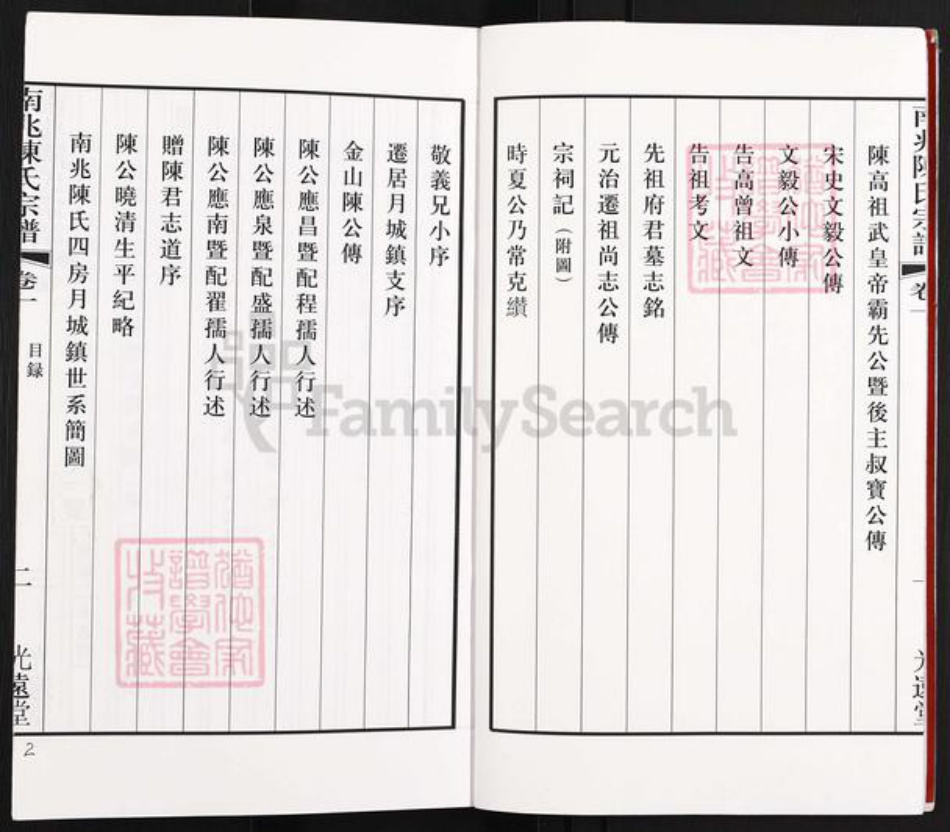 陳高祖武皇帝霸先公暨後主叔寶公傳
宋史文毅公傳
文毅公小傳
告高曾祖文
告祖考文
先祖府君墓志銘
元治遷祖尚志公傳
宗祠記（附圖）
時夏公乃常克纘
敬義兄小序
遷居月城鎮支序
金山陳公傳
陳公應昌暨配程孺人行述
陳公應泉暨配盛孺人行述
陳公應南暨配翟孺人行述
贈陳君志道序
陳公曉清生平紀略
南兆陳氏四房月城鎮世系簡圖
南兆陳氏宗譜
卷一
目録
二
光遠堂
2
南兆陳氏宗譜
卷一
一
光遠堂
FamilySearch